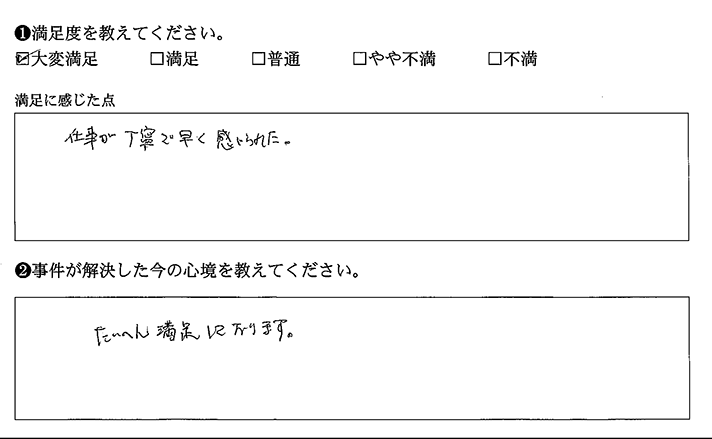 ❶満足度を教えてください。
☑大変満足 □満足 □普通 □やや不満 □不満
満足に感じた点
仕事が丁寧で早く感じられた。
❷事件が解決した今の心境を教えてください。
たいへん満足しております。